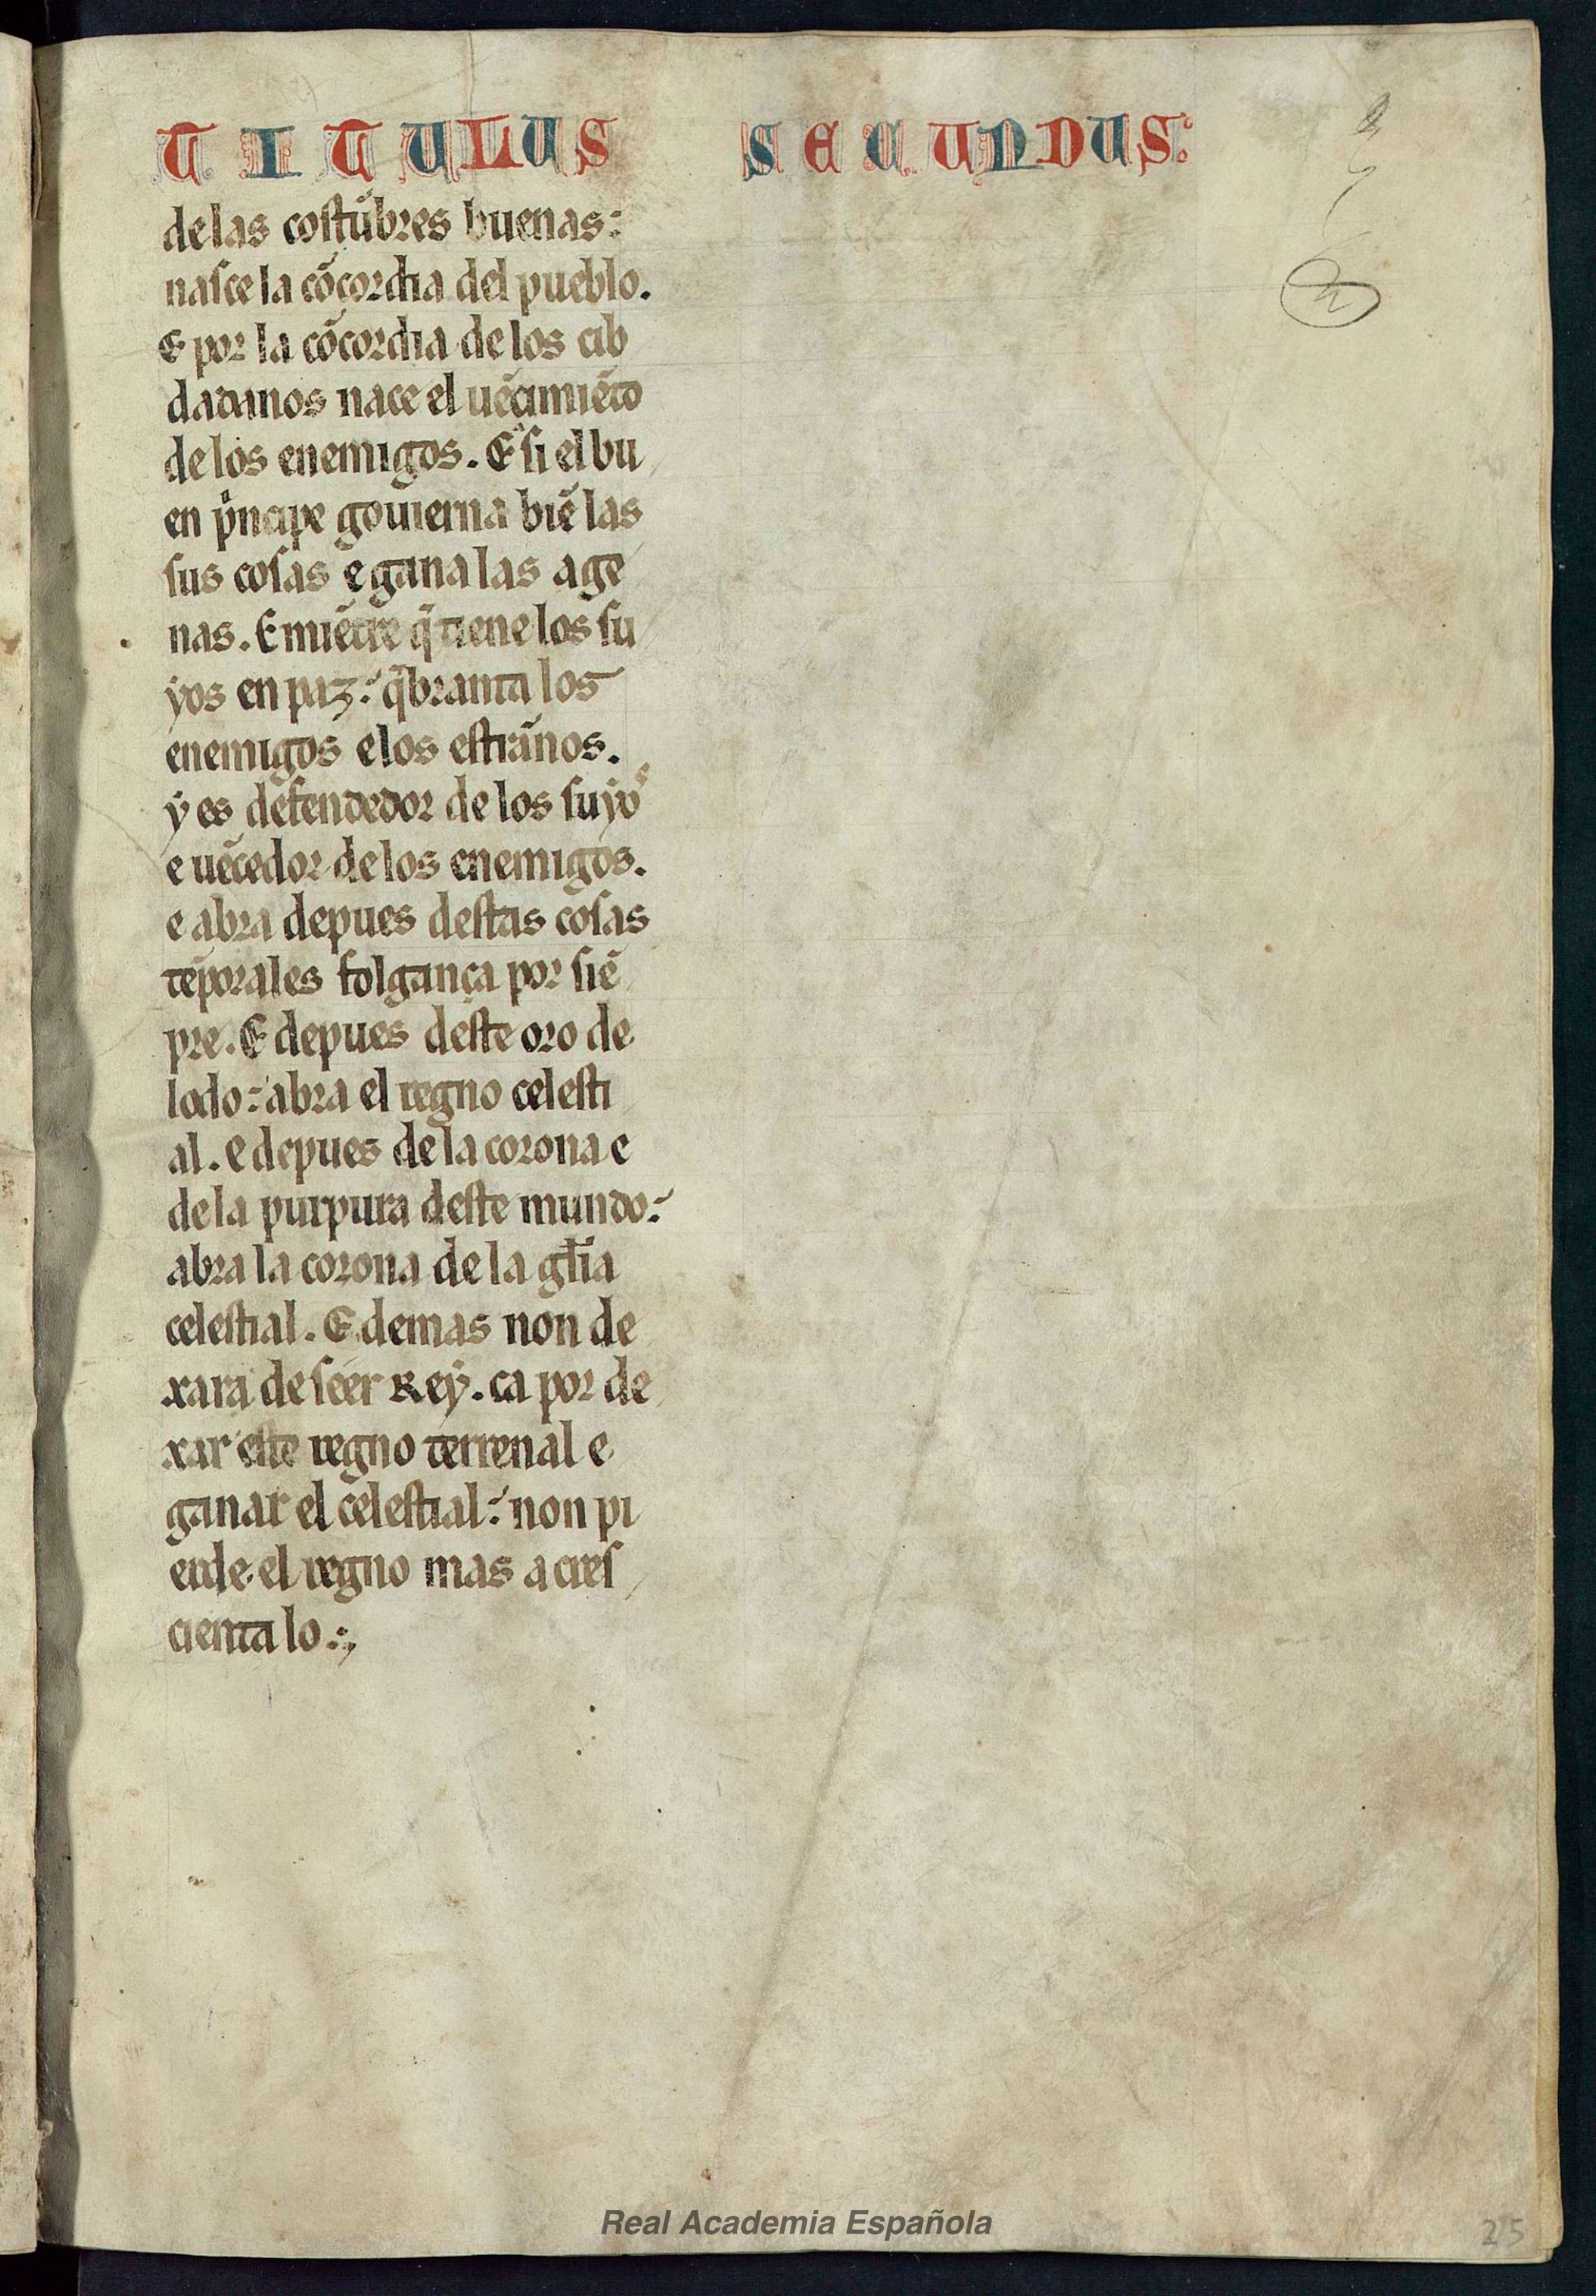 TITULUS SECUNDUS:
de las costũbres buenas:
nasce la cõcordia del pueblo.
E por la cõcordia de los cib
dadanos nace el uẽcimiẽto
de los enemigos. E si el bu
en pͥncipe gouierna biẽ las
sus cosas e gana las age
nas. E miẽtre q̃ tiene los su
yos en paz: q̃branta los
enemigos e los estrãnos.
y es defendedor de los suyos
e uẽcedor de los enemigos.
e abra depues destas cosas
tẽporales folgança por siẽ
pre. E depues deste oro de
lodo: abra el regno celesti
al. e depues de la corona e
de la purpura deste mundo:
abra la corona de la gl̃ia
celestial. E demas non de
xara de seer Rey. ca por de
xar este regno terrenal e
ganar el celestial: non pi
erde el regno mas acres
cienta lo.
Real Academia Española
25